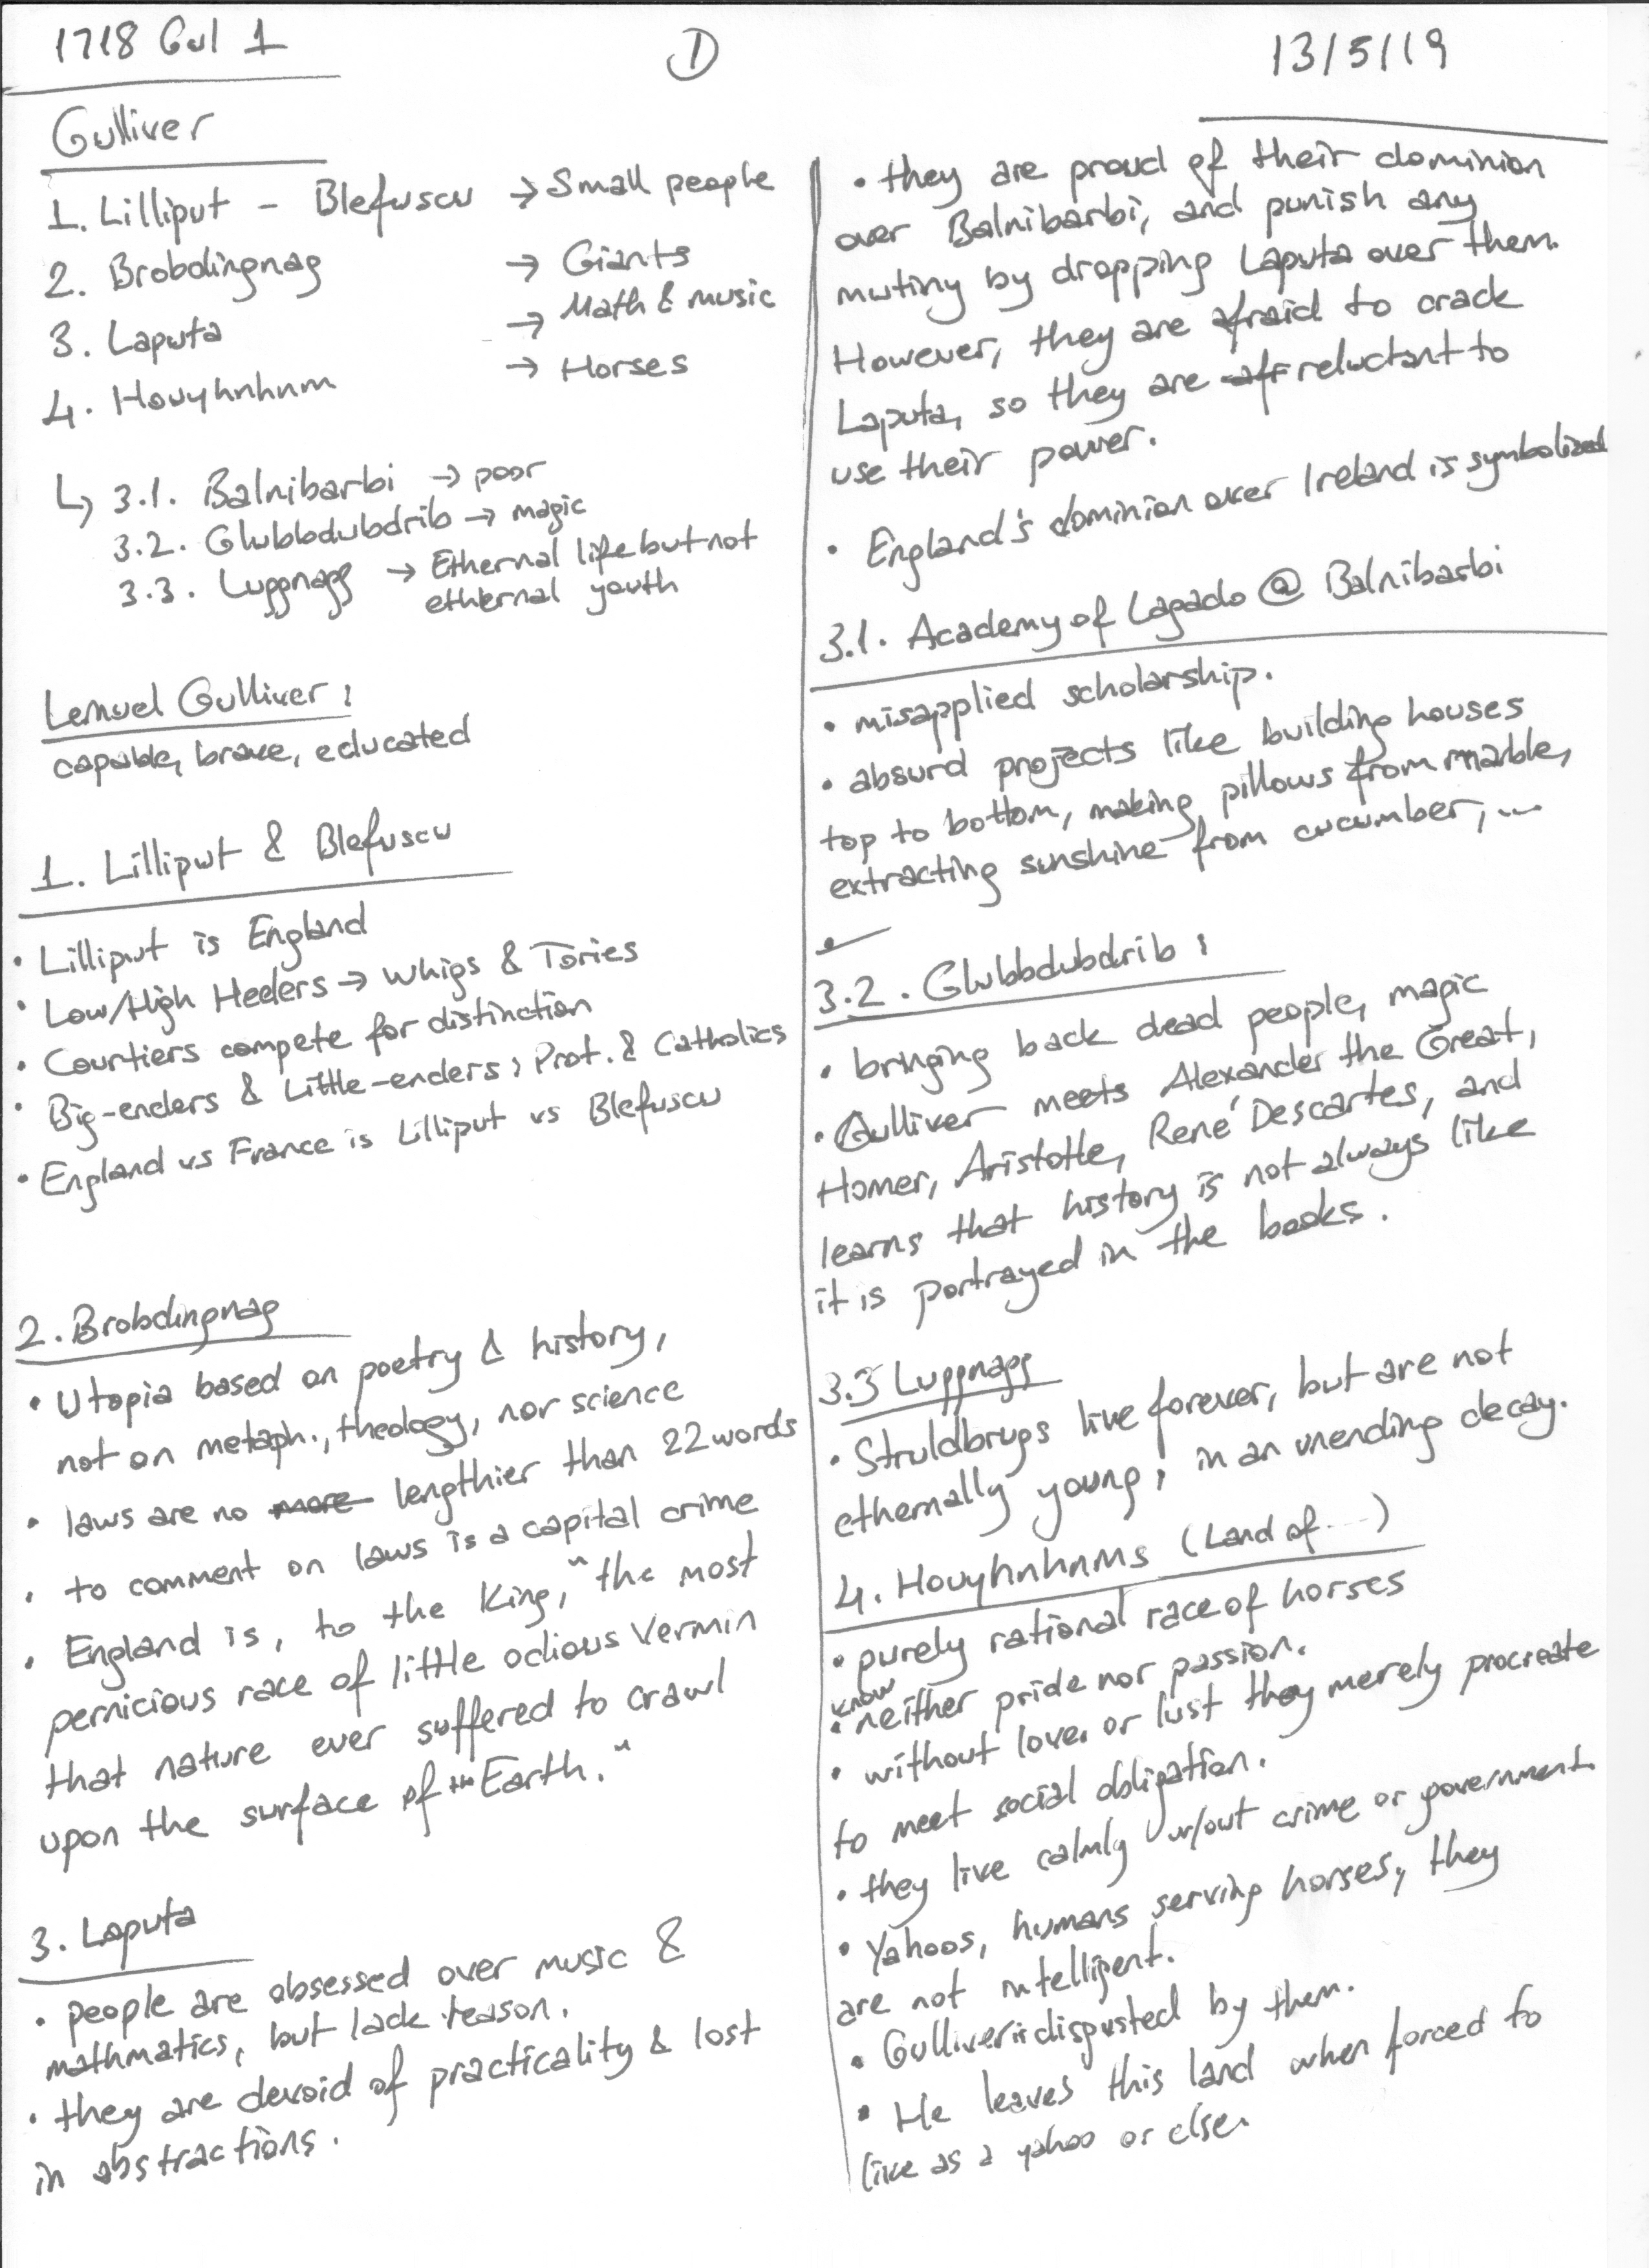 1718 Gul 1
1
13/5/19
Gulliver
1. Lilliput - Blefuscu → Small people
2. Brobdingnag → Giants
3. Laputa → Math & music
4. Houyhnhnm → Horses
↳ 3.1. Balnibarbi → poor
3.2. Glubbdubdrib → magic
3.3. Luggnagg → Ethernal life but not
ethernal youth
Lemuel Gulliver:
capable, brave, educated
1. Lilliput & Blefuscu
• Lilliput is England
• Low/High Heelers → Whigs & Tories
• Courtiers compete for distinction
• Big-enders & Little-enders: Prot. & Catholics
• England vs France is Lilliput vs Blefuscu
2. Brobdingnag
• Utopia based on poetry & history,
not on metaph., theology, nor science
• laws are no more lengthier than 22 words
• to comment on laws is a capital crime
• England is, to the King, "the most
pernicious race of little odious vermin
that nature ever suffered to crawl
upon the surface of the Earth."
3. Laputa
• people are obsessed over music &
mathmatics, but lack reason.
• they are devoid of practicality & lost
in abstractions.
• they are proud of their dominion
over Balnibarbi, and punish any
mutiny by dropping Laputa over them.
However, they are afraid to crack
Laputa, so they are aff reluctant to
use their power.
• England's dominion over Ireland is symbolized
3.1. Academy of Lagado @ Balnibarbi
• misapplied scholarship.
• absurd projects like building houses
top to bottom, making pillows from marble,
extracting sunshine from cucumber, ...
3.2. Glubbdubdrib:
• bringing back dead people, magic
• Gulliver meets Alexander the Great,
Homer, Aristotle, René Descartes, and
learns that history is not always like
it is portrayed in the books.
3.3 Luggnagg
• Struldbrugs live forever, but are not
ethernally young; in an unending decay.
4. Houyhnhnms (Land of ...)
• purely rational race of horses
• know neither pride nor passion.
• without love or lust they merely procreate
to meet social obligation.
• they live calmly w/out crime or government.
• Yahoos, humans serving horses, they
are not intelligent.
• Gulliver is disgusted by them.
• He leaves this land when forced to
live as a yahoo or else.